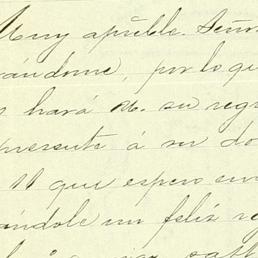 Muy aprêble. Señor
rándome, por lo que
hará U. su regr
presente á su do
11 que espero
ándole un feliz